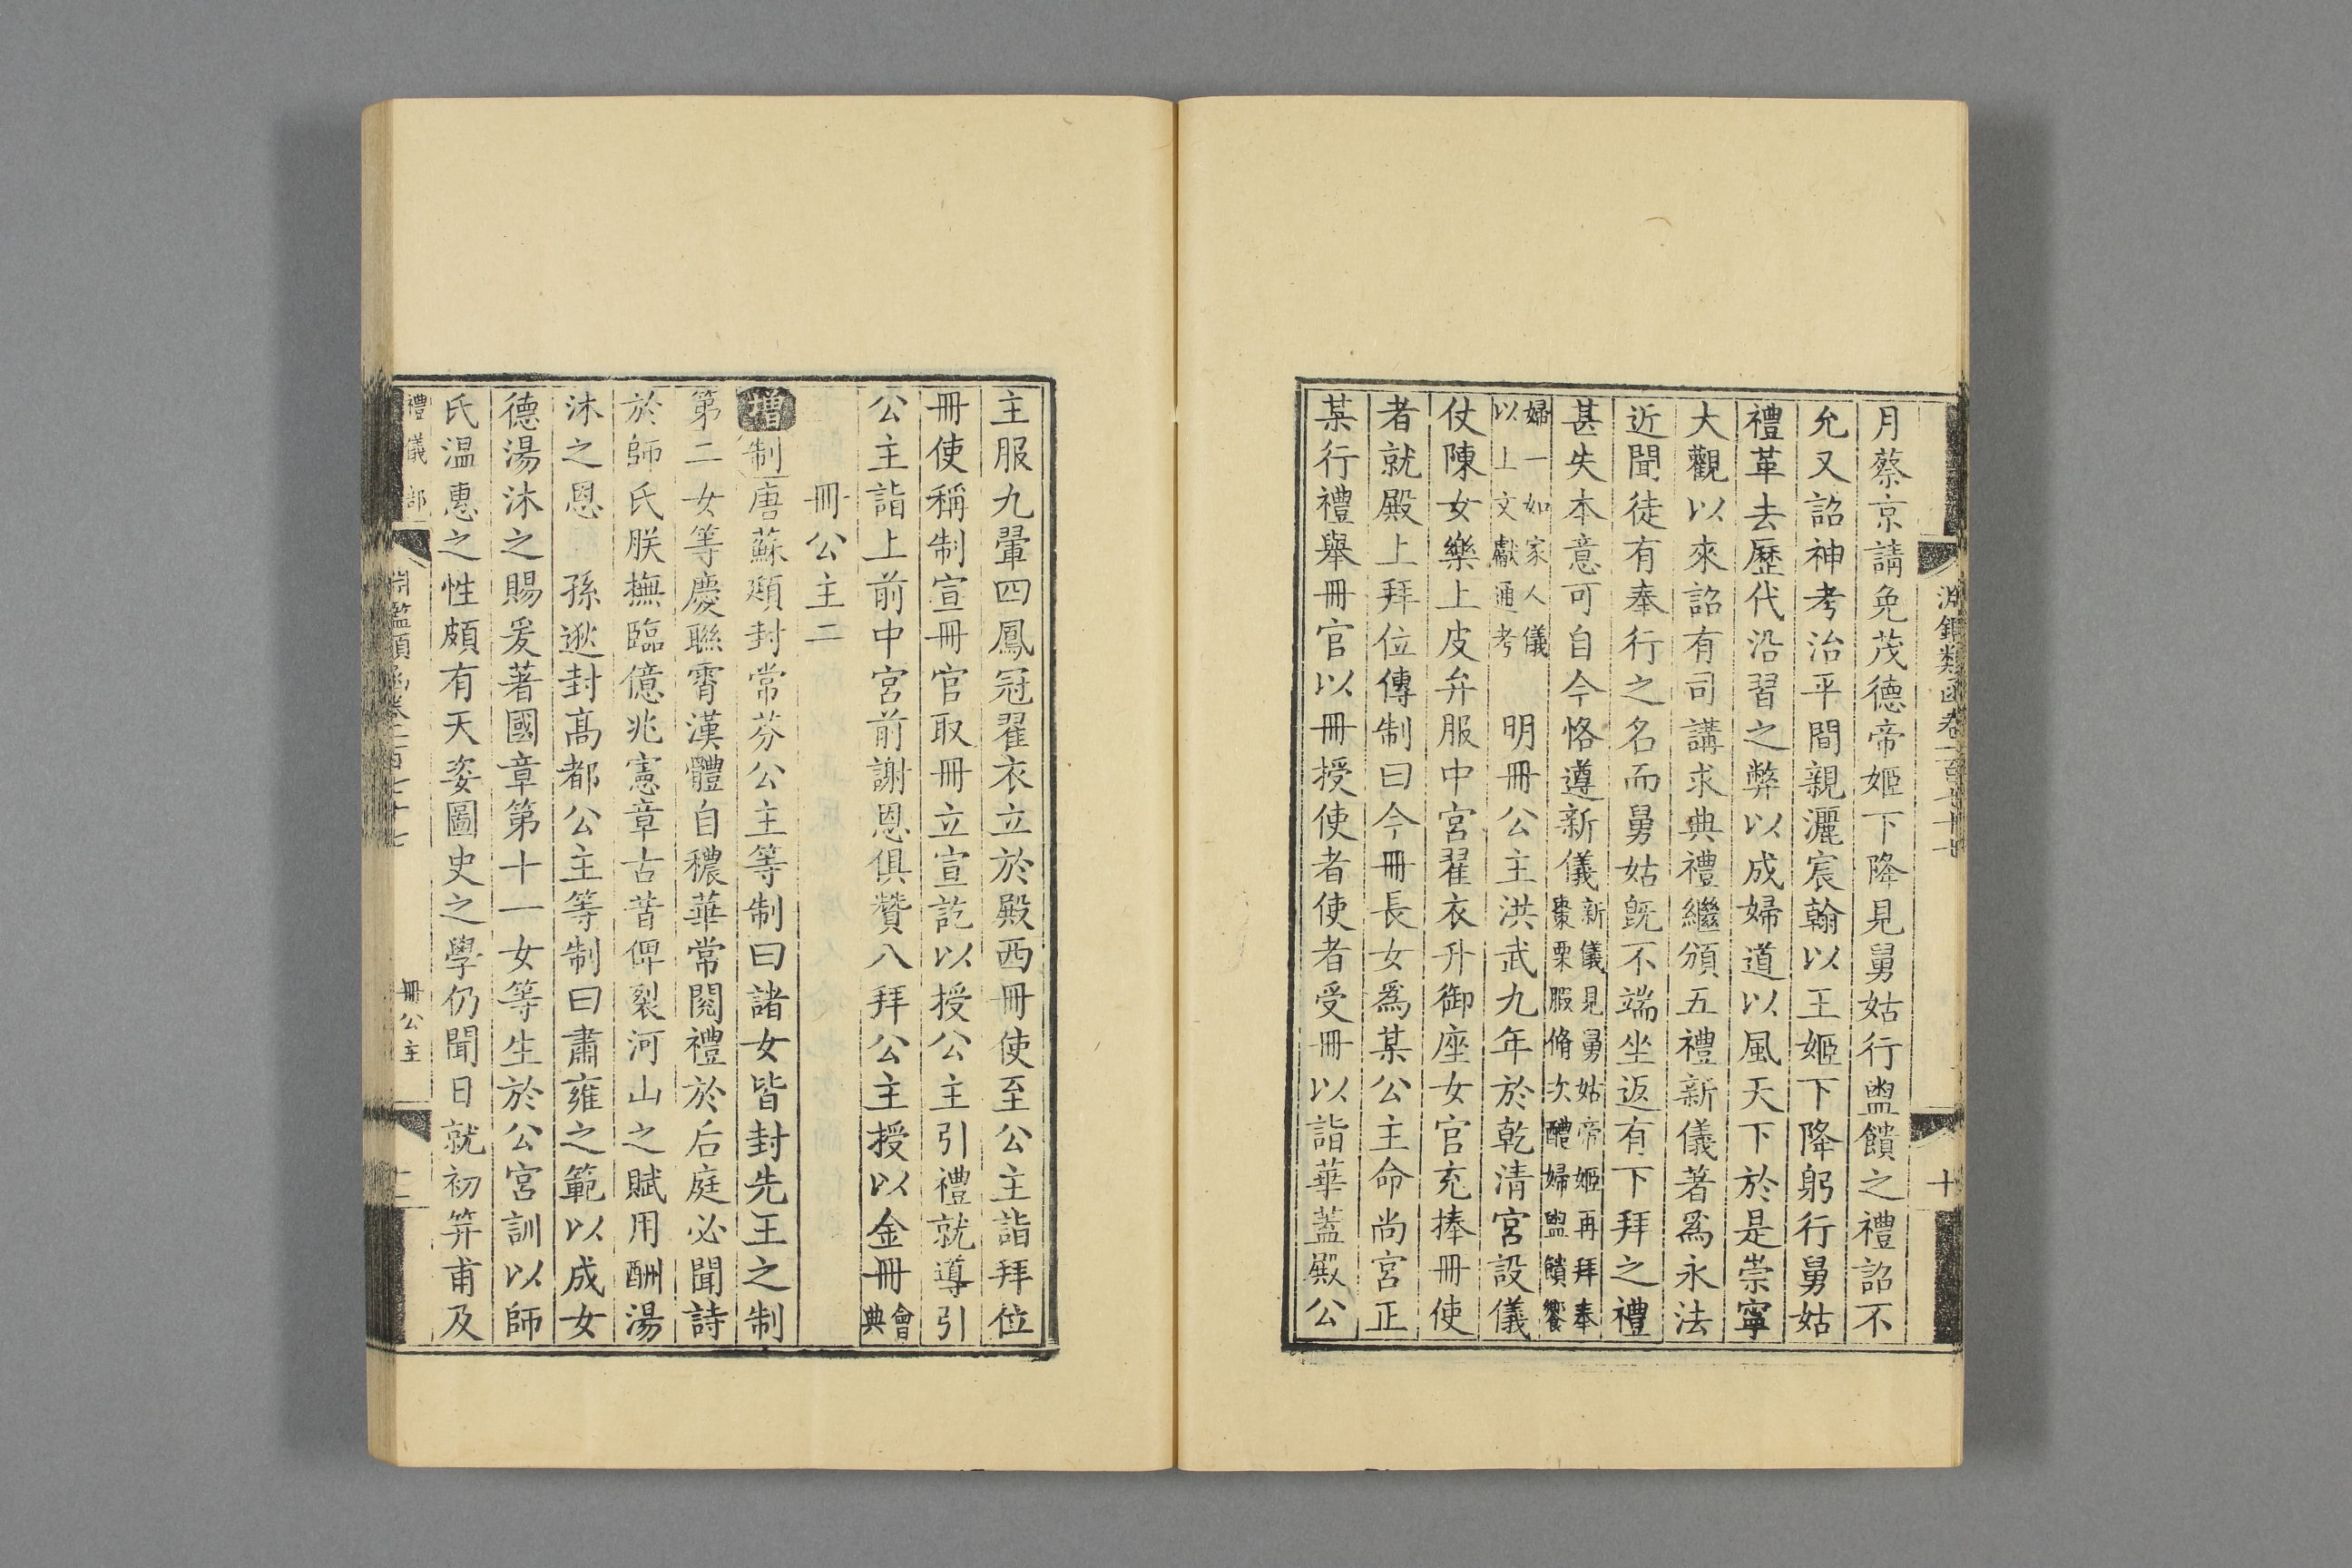 月蔡京請免茂德帝姬下降見舅姑行盥饋之禮詔不
允又詔神考治平間親灑宸翰以王姬下降躬行舅姑
禮革去歷代沿習之弊以成婦道以風天下於是崇寧
大觀以來詔有司講求典禮繼頒五禮新儀著爲永法
近聞徒有奉行之名而舅姑旣不端坐返有下拜之禮
甚失本意可自今恪遵新儀新儀見舅姑帝姬再拜奉棗栗腶脩次醴婦盥饋饗
婦一如家人儀以上文獻通考 明冊公主洪武九年於乾清宮設儀
仗陳女樂上皮弁服中宮翟衣升御座女官充捧冊使
者就殿上拜位傳制曰今冊長女爲某公主命尚宮正
某行禮舉冊官以冊授使者使者受冊以詣華蓋殿公
主服九翬四鳳冠翟衣立於殿西冊使至公主詣拜位
冊使稱制宣冊官取冊立宣訖以授公主引禮就導引
公主詣上前中宮前謝恩俱贊八拜公主授以金冊會典
冊公主二
增制唐蘇頲封常芬公主等制曰諸女皆封先王之制
第二女等慶聯霄漢體自穠華常閱禮於后庭必聞詩
於師氏朕撫臨億兆憲章古昔俾裂河山之賦用酬湯
沐之恩 孫逖封高都公主等制曰肅雍之範以成女
德湯沐之賜爰著國章第十一女等生於公宮訓以師
氏温惠之性頗有天姿圖史之學仍聞日就初筓甫及
禮儀部 淵鑑類函卷一百七十七 冊公主